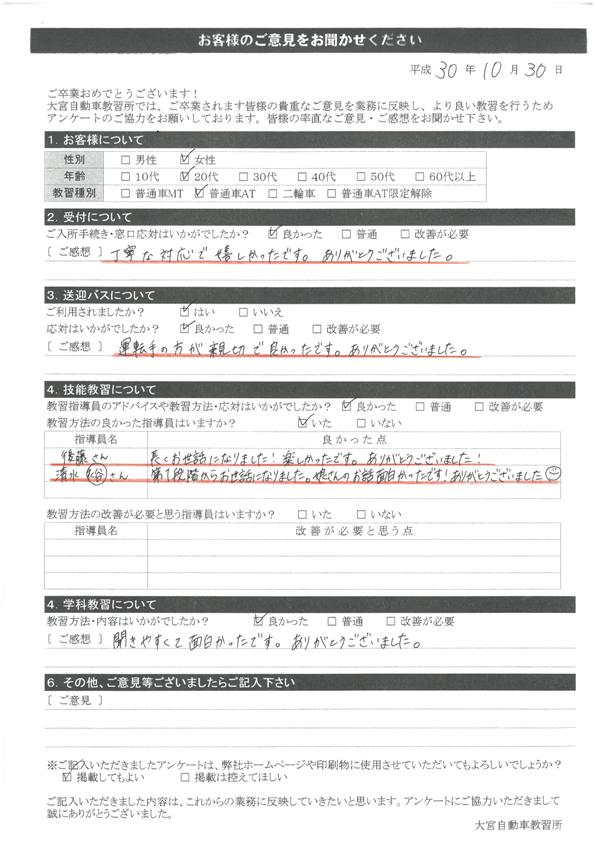 お客様のご意見をお聞かせください
平成 30 年 10 月 30 日
ご卒業おめでとうございます！
大宮自動車教習所では、ご卒業されます皆様の貴重なご意見を業務に反映し、より良い教習を行うため
アンケートのご協力をお願いしております。皆様の率直なご意見・ご感想をお聞かせ下さい。
1. お客様について
性別 □ 男性 ☑ 女性
年齢 □ 10代 ☑ 20代 □ 30代 □ 40代 □ 50代 □ 60代以上
教習種別 □ 普通車MT ☑ 普通車AT □ 二輪車 □ 普通車AT限定解除
2. 受付について
ご入所手続き・窓口応対はいかがでしたか？ ☑ 良かった □ 普通 □ 改善が必要
［ ご感想 ］ 丁寧な対応で嬉しかったです。ありがとうございました。
3. 送迎バスについて
ご利用されましたか？ ☑ はい □ いいえ
応対はいかがでしたか？ ☑ 良かった □ 普通 □ 改善が必要
［ ご感想 ］ 運転手の方が親切で良かったです。ありがとうございました。
4. 技能教習について
教習指導員のアドバイスや教習方法・応対はいかがでしたか？ ☑ 良かった □ 普通 □ 改善が必要
教習方法の良かった指導員はいますか？ ☑ いた □ いない
指導員名 良かった点
後藤さん 長くお世話になりました！楽しかったです。ありがとうございました！
清水 さん 第1段階からお世話になりました。娘さんのお話面白かったです！ありがとうございました
教習方法の改善が必要と思う指導員はいますか？ □ いた □ いない
指導員名 改善が必要と思う点
4. 学科教習について
教習方法・内容はいかがでしたか？ ☑ 良かった □ 普通 □ 改善が必要
［ ご感想 ］ 聞きやすくて面白かったです。ありがとうございました。
6. その他、ご意見等ございましたらご記入下さい
［ ご意見 ］
※ご記入いただきましたアンケートは、弊社ホームページや印刷物に使用させていただいてもよろしいでしょうか？
☑ 掲載してもよい □ 掲載は控えてほしい
ご記入いただきました内容は、これからの業務に反映していきたいと思います。アンケートにご協力いただきまして
誠にありがとうございました。
大宮自動車教習所